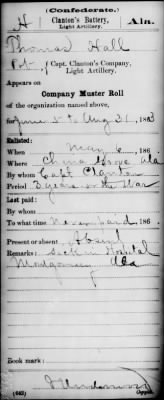 (Confederate.)
H Clanton's Battery, Light Artillery. Ala.
Thomas Hall
Pvt, Capt. Clanton's Company, Light Artillery.
Appears on
Company Muster Roll
of the organization named above,
for June 5 to Aug 31, 1863
Enlisted:
When May 6, 186
Where China Grove Ala
By whom Capt Clanton
Period 3 years or the War
Last paid:
By whom
To what time Never paid 186
Present or absent Absent
Remarks: Sick in Hospital
Montgomery Ala
Book mark:
(642) Copyist.